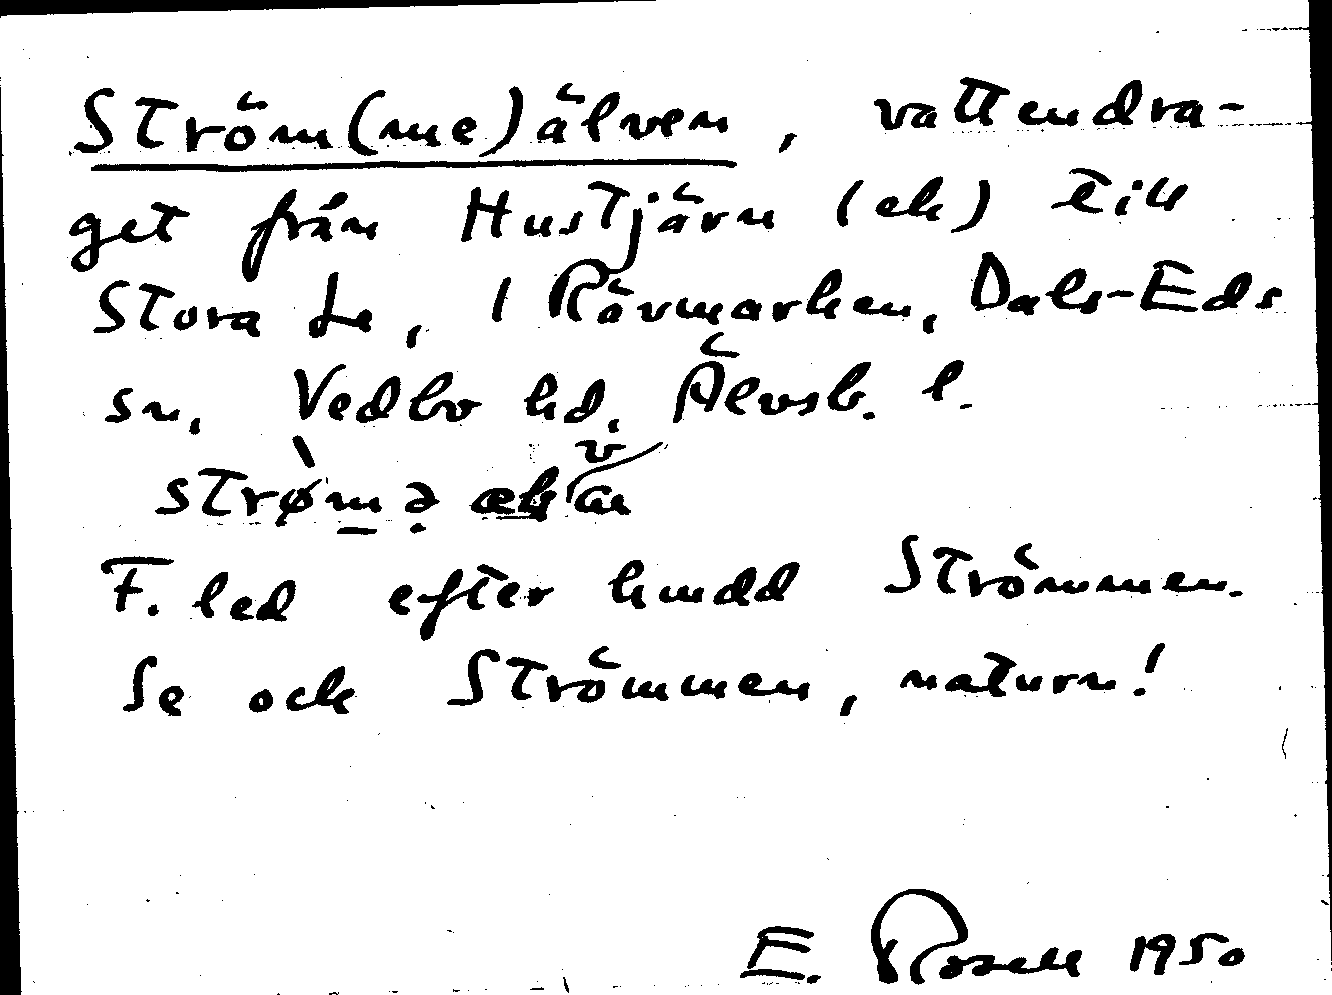 Ström(me)älven, vattendra-
get från Hustjärn (ek) till
Stora Le, i Rävmarken, Dals-Eds
sn, Vedbo hd, Älvsb. l.
F. led efter hmdd Strömmen.
Se och Strömmen, naturn!
E. Rosell 1950